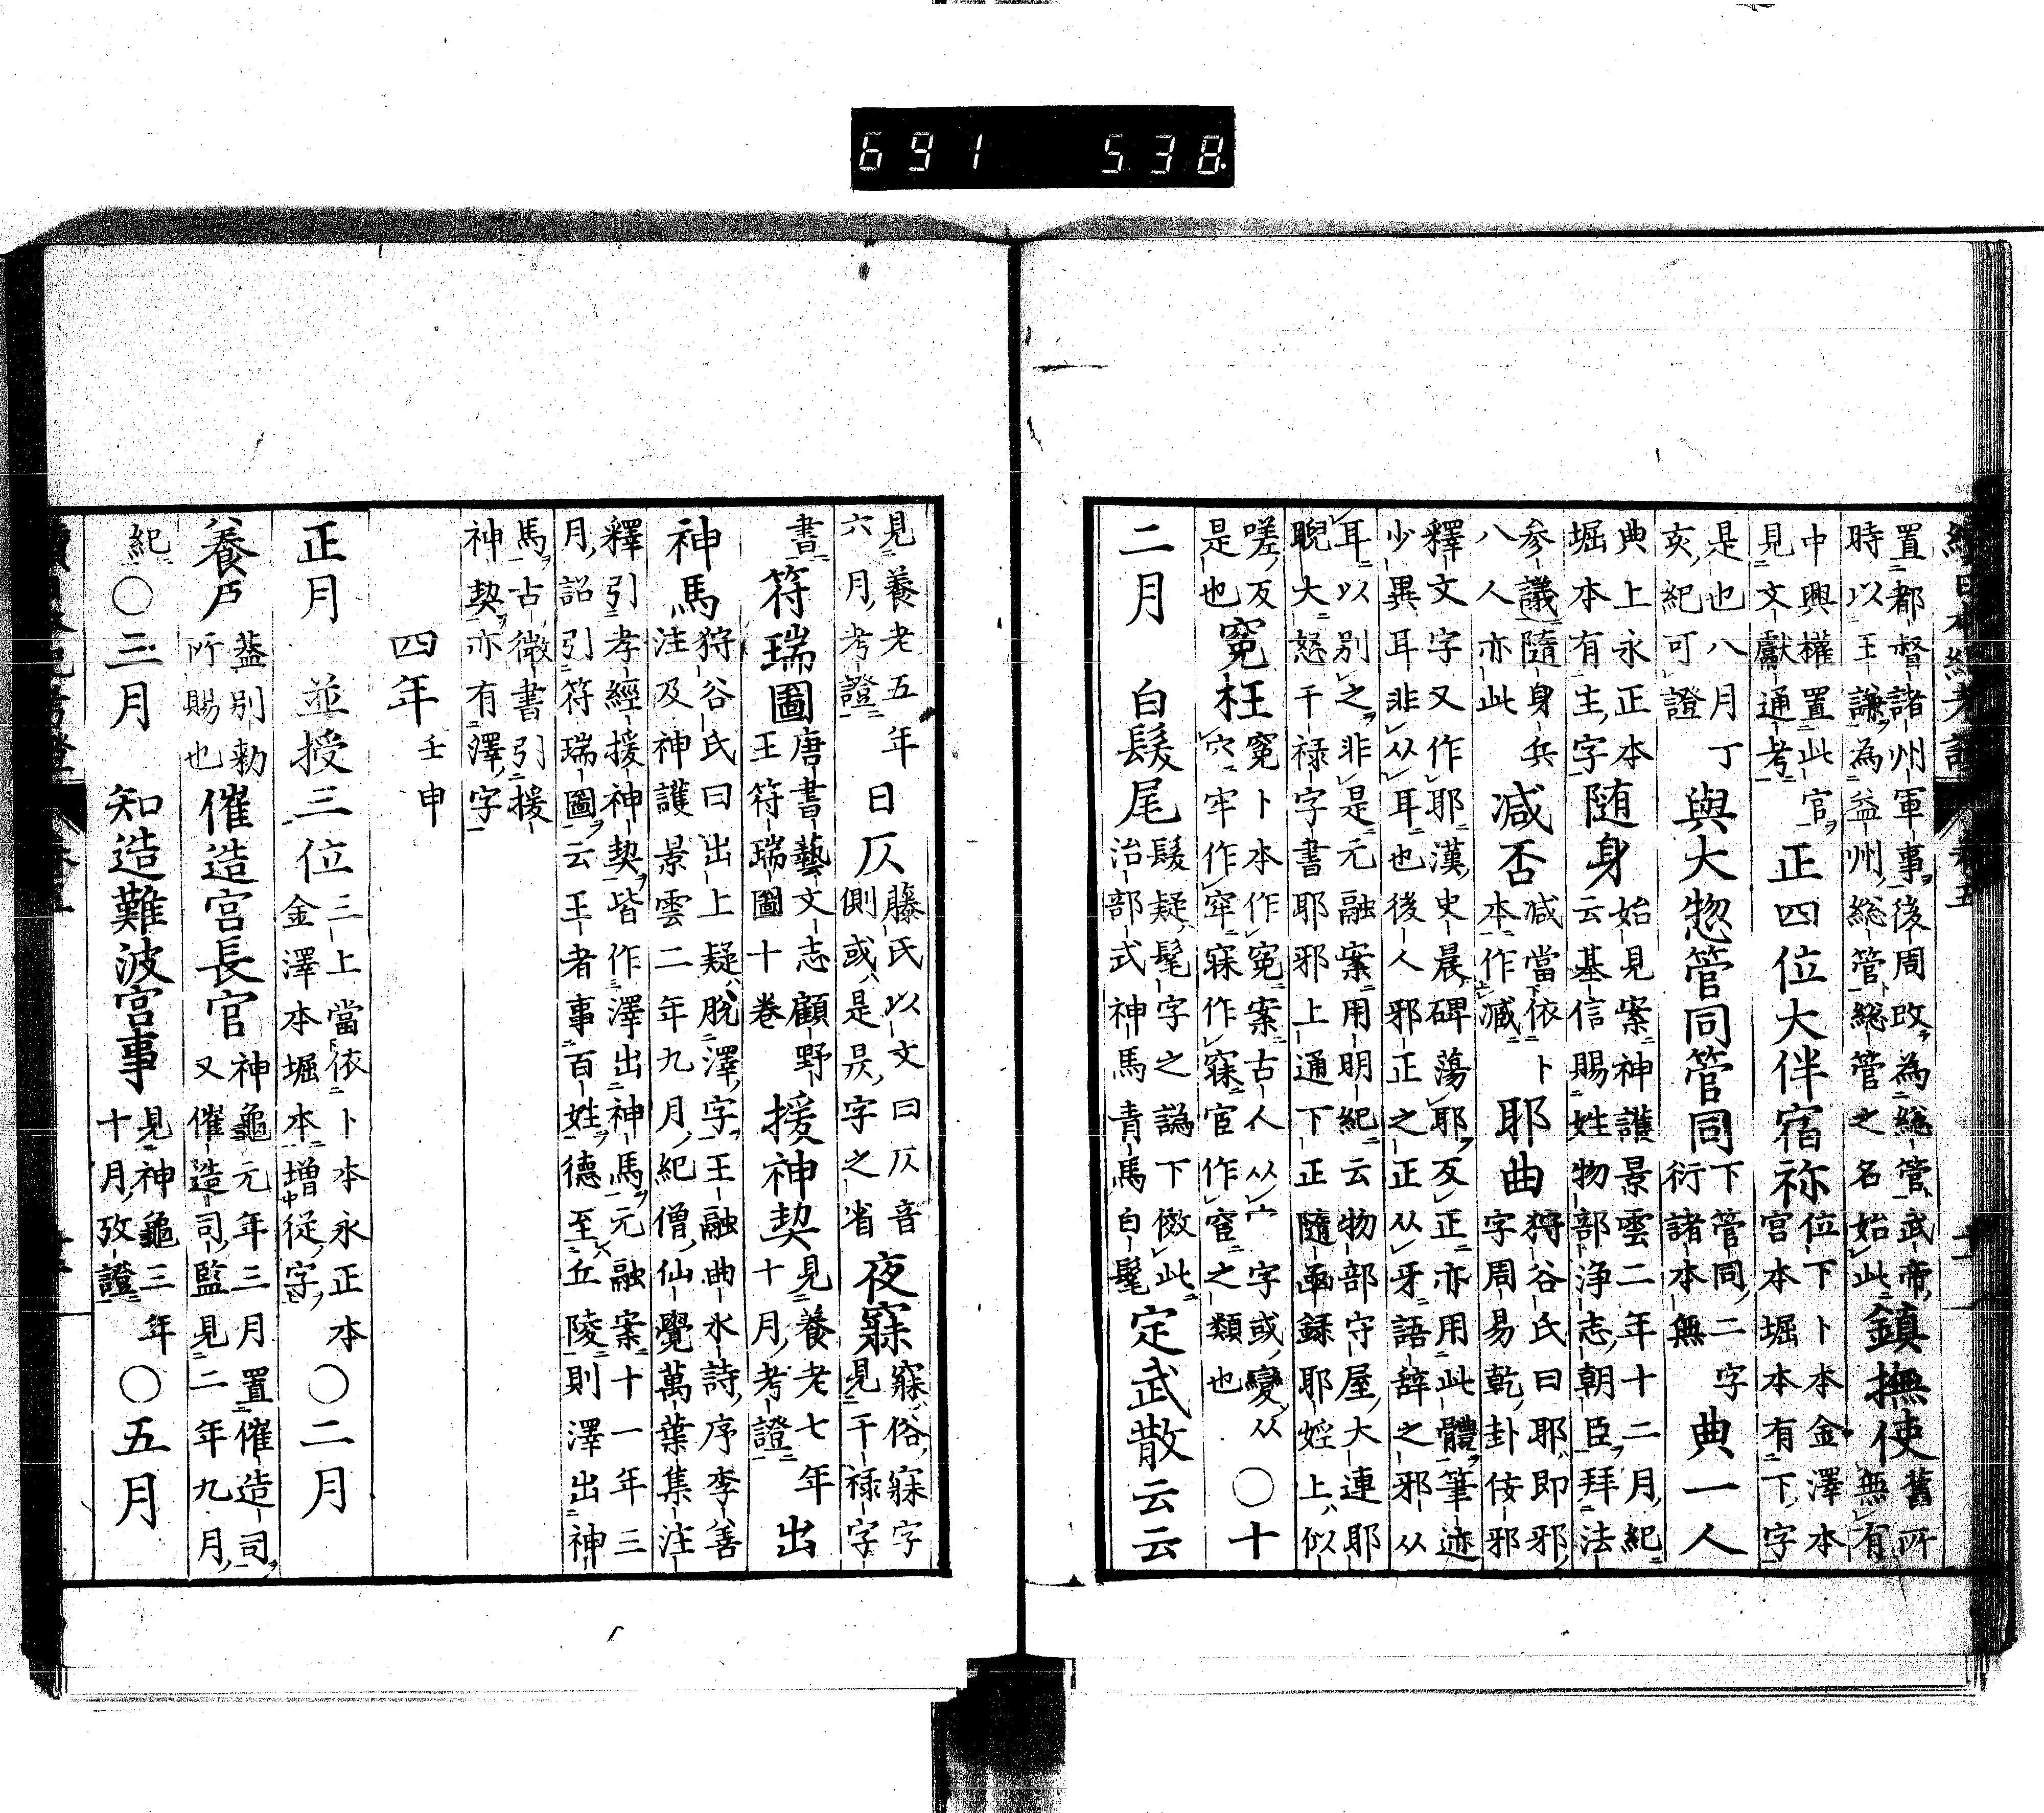 691 538
置都督諸州軍事後周改為総管武帝
時以王謙為益州総管総管之名始此
鎮撫使
舊所
無有
中興權置此官
見文獻通考
正四位大伴宿祢
位下卜本金澤本
宮本堀本有下字
是也八月丁
亥紀可證
與大惣管同管同
下管同二字
衍諸本無
典一人
典上永正本
堀本有主字
随身
始見案神護景雲二年十二月紀
云基信賜姓物部浄志朝臣拜法
参議随身兵
八人亦此
减否
减當依卜
本作臧
耶曲
狩谷氏曰耶即邪
字周易乾卦侫邪
釋文字又作耶漢史晨碑蕩耶反正亦用此體筆迹
少異耳非从耳也後人邪正之正从牙語辞之邪从
耳以别之非是元融案用明紀云物部守屋大連耶
睨大怒干禄字書耶邪上通下正随函録耶婬上似
嗟反
是也
寃枉
寃卜本作寃案古人从宀字或變从
穴牢作窂寐作寱官作窅之類也
〇十
二月
白髮尾
髮疑髦字之譌下倣此
治部式神馬青馬白髦
定武散云云
見養老五年
六月考證
日仄
藤氏以文曰仄音
側或是昃字之省
夜寐
寐俗寐字
見干禄字
書
符瑞圖
唐書藝文志顧野
王符瑞圖十卷
援神契
見養老七年
十月考證
出
神馬
狩谷氏曰出上疑脱澤字王融曲水詩序李善
注及神護景雲二年九月紀僧仙覺萬葉集注
釋引孝經援神契皆作澤出神馬元融案十一年三
月詔引符瑞圖云王者事百姓德至丘陵則澤出神
馬古微書引援
神契亦有澤字
四年
壬申
正月
並授三位
三上當依卜本永正本
金澤本堀本増從字
〇二月
養戸
葢别勅
所賜也
催造宮長官
神龜元年三月置催造司
又催造司監見二年九月
紀
〇三月
知造難波宮事
見神龜三年
十月攷證
〇五月